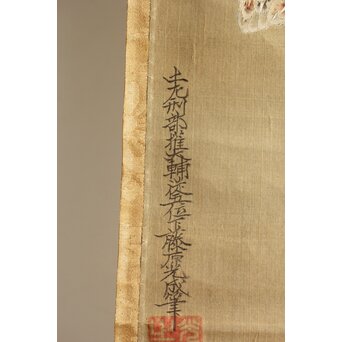 土左刑部権大輔従五位下藤原光成筆